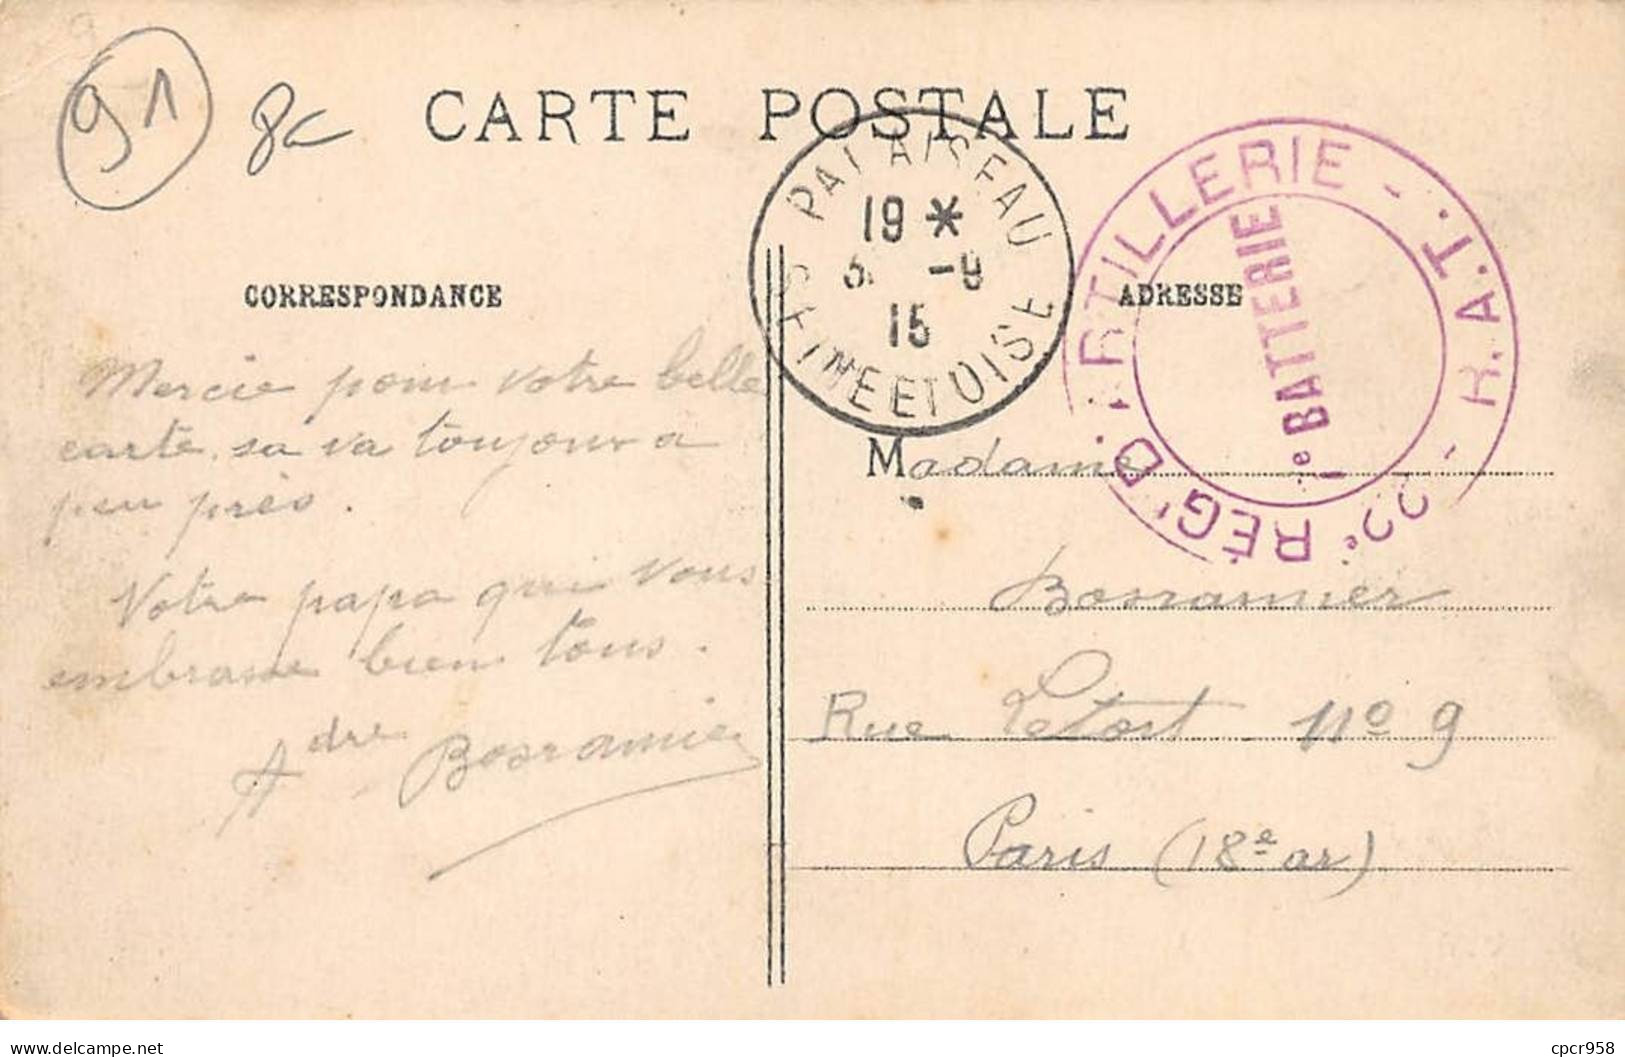 91
8c
CARTE POSTALE
PALAISEAU
19 *
-9
15
SEINE ET OISE
22e RÉGt D'ARTILLERIE - R.A.T.
1e BATTERIE
CORRESPONDANCE
ADRESSE
Mercie pour votre belle
carte. sa va toujours a
peu près.
Votre papa qui vous
embrasse bien tous.
Adre
Madame
Rue Letort No 9
Paris (18e ar)
delcampe.net
cpcr958